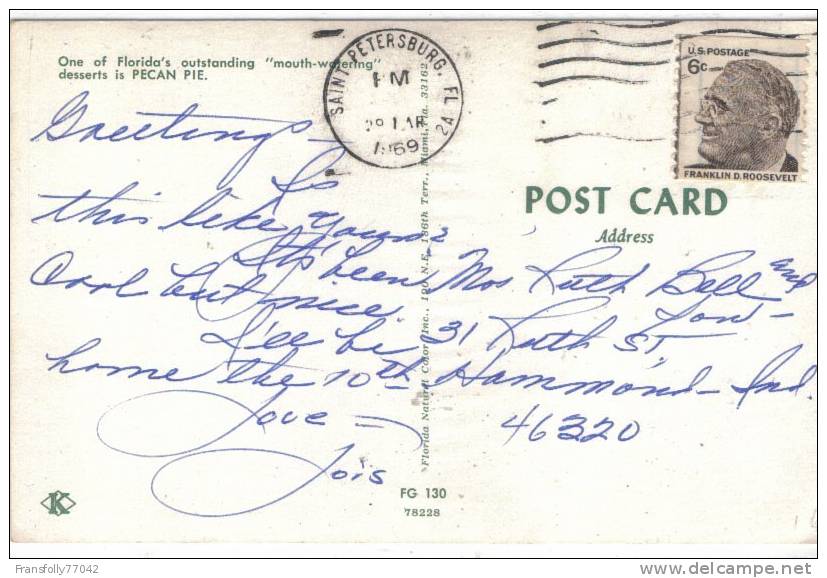 One of Florida's outstanding "mouth-watering"
desserts is PECAN PIE.
SAINT PETERSBURG, FL
PM
1969
2A
U.S. POSTAGE
6c
FRANKLIN D. ROOSEVELT
Greetings -
Is
this like yours?
It's been
cool but nice.
I'll be
home the 10th
Love -
Lois
POST CARD
Address
Mrs Ruth Bell and
Tow-
31 Ruth St,
Hammond - Ind.
46320
Florida Natural Color, Inc., 190 N.E. 186th Terr., Miami, Fla. 33162
K
FG 130
78228
Fransfolly77042
delcampe.net